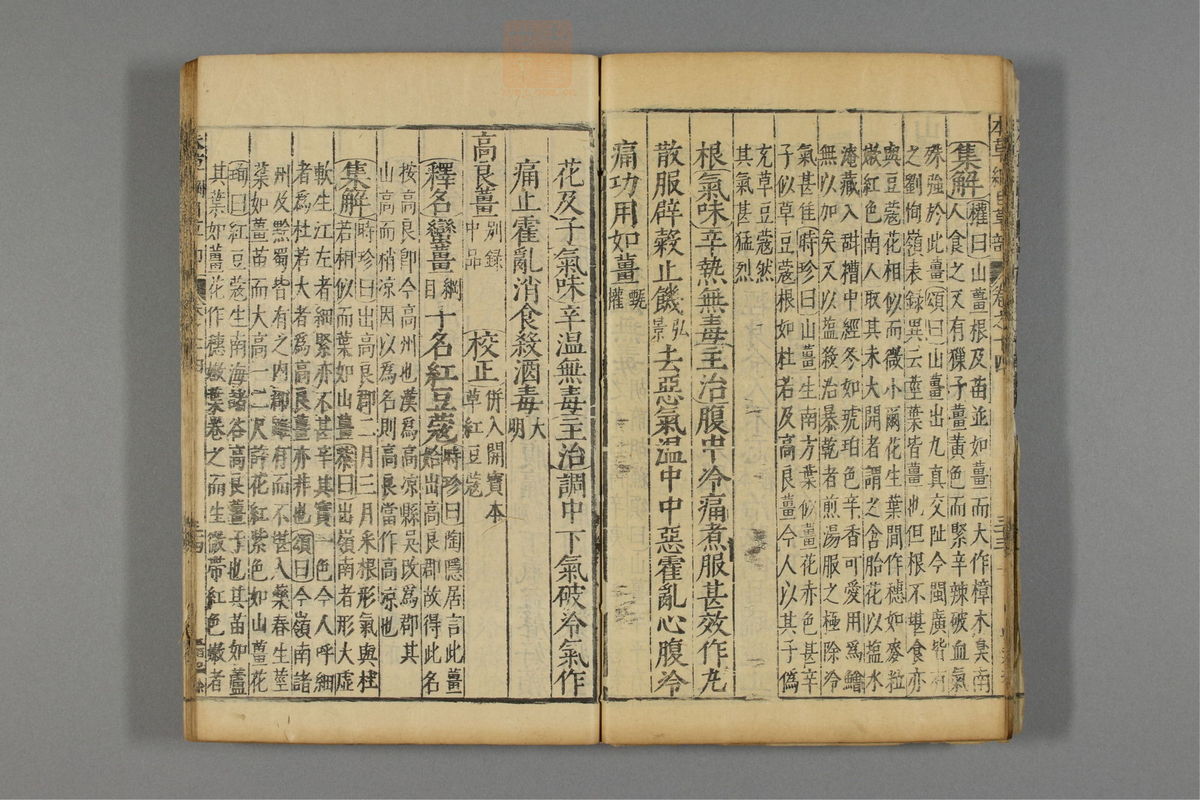 本草綱目草部 卷之十四 三三
集解權曰山薑根及苗並如薑而大作樟木臭南
人食之又有獋子薑黃色而緊辛辣破血氣
殊強於此薑頌曰山薑出九真交阯今閩廣皆有
之劉恂嶺表録異云莖葉皆薑也但根不堪食亦
與豆蔻花相似而微小爾花生葉間作穗如麥粒
嫩紅色南人取其未大開者謂之含胎花以塩水
淹藏入甜糟中經冬如琥珀色辛香可愛用爲鱠
無以加矣又以塩殺治暴乾者煎湯服之極除冷
氣甚佳時珍曰山薑生南方葉似薑花赤色甚辛
子似草豆蔻根如杜若及高良薑今人以其子僞
充草豆蔻然
其氣甚猛烈
根氣味辛熱無毒主治腹中冷痛煮服甚效作丸
散服辟穀止饑弘景去惡氣溫中中惡霍亂心腹冷
痛功用如薑甄權
花及子氣味辛温無毒主治調中下氣破冷氣作
痛止霍亂消食殺酒毒大明
高良薑别録中品 校正併入開寶本草紅豆蔻
釋名蠻薑綱目子名紅豆蔻時珍曰陶隱居言此薑始出高良郡故得此名
按高良卽今高州也漢爲高凉縣吳改為郡其
山高而稍凉因以為名則高良當作高凉也
集解時珍曰出高良郡二月三月采根形氣與杜
若相似而葉如山薑㳟曰出嶺南者形大虛
軟生江左者細緊亦不甚辛其實一色今人呼細
者爲杜若大者爲高良薑亦非也頌曰今嶺南諸
州及黔蜀皆有之内郡雖有而不堪入藥春生莖
葉如薑苗而大高一二尺許花紅紫色如山薑花
珣曰紅豆蔻生南海諸谷高良薑子也其苗如蘆
其葉如薑花作穗嫩葉卷之而生微帶紅色嫩者